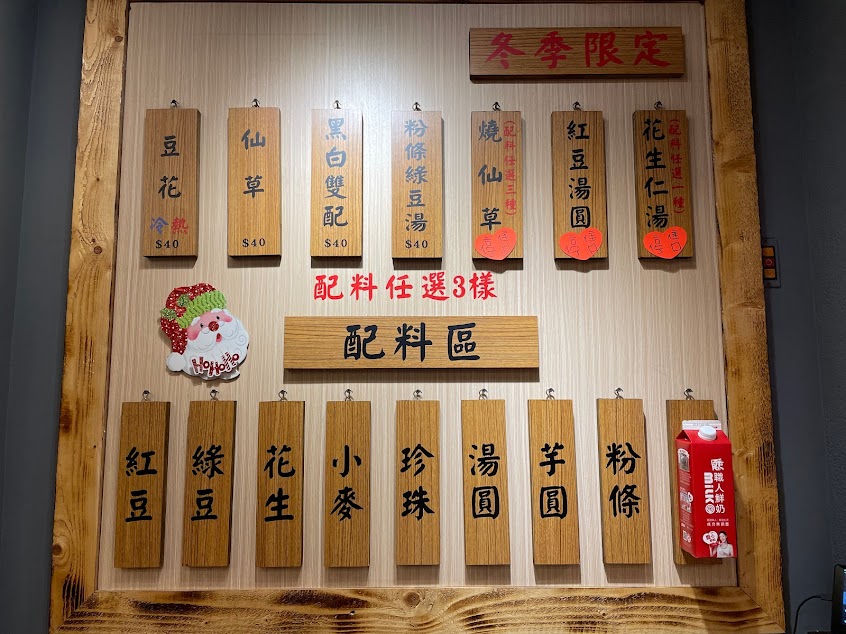 冬季限定
豆花
冷熱
$40
仙草
$40
黑白雙配
$40
粉條綠豆湯
$40
燒仙草
(配料任選三種)
紅豆湯圓
花生仁湯
(配料任選一種)
配料任選3樣
HoHoHo
配料區
紅豆
綠豆
花生
小麥
珍珠
湯圓
芋圓
粉條
職人鮮奶
milk